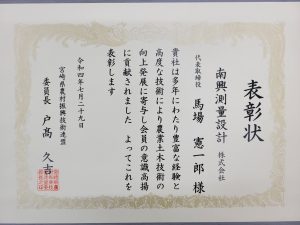 表彰状
南興測量設計 株式会社
代表取締役 馬場 憲一郎 様
貴社は多年にわたり豊富な経験と
高度な技術により農業土木技術の
向上発展に寄与し会員の意識高揚
に貢献されました よってこれを
表彰します
令和四年七月二十九日
宮崎県農村振興技術連盟
委員長 戸高 久吉